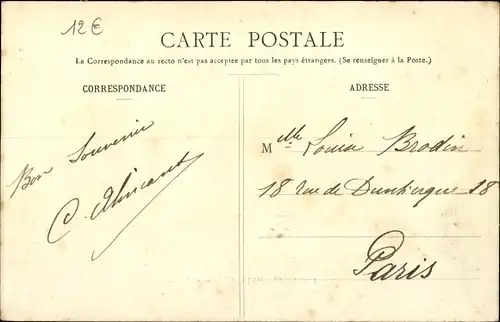 12€
CARTE POSTALE
La Correspondance au recto n'est pas acceptée par tous les pays étrangers. (Se renseigner à la Poste.)
CORRESPONDANCE
ADRESSE
Bon Souvenir
C.
Mlle Louise Brodin
18 rue de Dunkerque 18
Paris